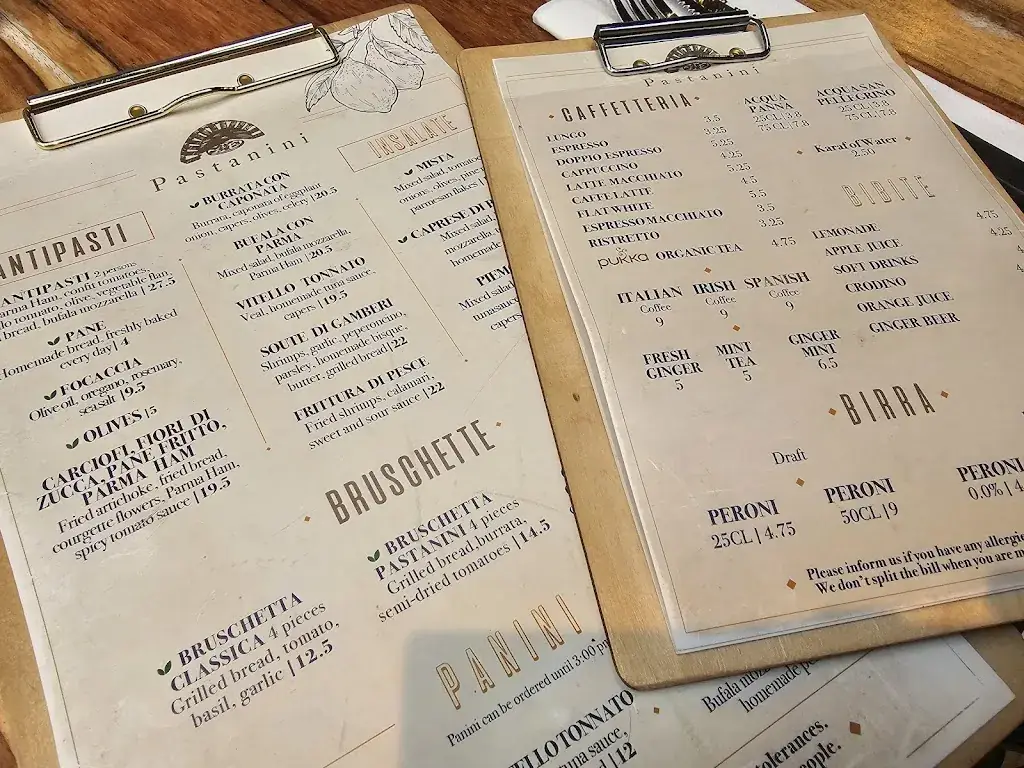 Pastanini
ANTIPASTI
ANTIPASTI 2 persons
Parma Ham, confit tomatoes,
tomato, olive, vegetable flan,
bread, bufala mozzarella | 27.5
PANE
Homemade bread, freshly baked
every day | 4
FOCACCIA
Olive oil, oregano, rosemary,
sea salt | 9.5
OLIVES | 5
CARCIOFI, FIORI DI
ZUCCA, PANE FRITTO,
PARMA HAM
Fried artichoke, fried bread,
courgette flowers, Parma Ham,
spicy tomato sauce | 19.5
BURRATA CON
CAPONATA
Burrata, caponata of eggplant
onion, capers, olives, celery | 20.5
BUFALA CON
PARMA
Mixed salad, bufala mozzarella,
Parma Ham | 20.5
VITELLO TONNATO
Veal, homemade tuna sauce,
capers | 19.5
SOUTE DI GAMBERI
Shrimps, garlic, peperoncino,
parsley, homemade bisque,
butter, grilled bread | 22
FRITTURA DI PESCE
Fried shrimps, calamari,
sweet and sour sauce | 22
INSALATE
MISTA
Mixed salad, tomato
onions, olives,
parmesanflakes
CAPRESE DI
Mixed salad,
mozzarella,
homemade
PIEM
Mixed salad
tunasauce
capers
BRUSCHETTE
BRUSCHETTA
CLASSICA 4 pieces
Grilled bread, tomato,
basil, garlic | 12.5
BRUSCHETTA
PASTANINI 4 pieces
Grilled bread, burrata,
semi-dried tomatoes | 14.5
PANINI
Panini can be ordered until 3:00 p
ELLO TONNATO
una sauce,
| 12
Bufala mozz
homemade pe
tolerances.
eople.
Pastanini
CAFFETTERIA
LUNGO 3.5
ESPRESSO 3.25
DOPPIO ESPRESSO 5.25
CAPPUCCINO 4.25
LATTE MACCHIATO 5.25
CAFFE LATTE 4.5
FLAT WHITE 5.5
ESPRESSO MACCHIATO 3.5
RISTRETTO 3.25
pukka ORGANIC TEA 4.75
ITALIAN
Coffee
9
IRISH
Coffee
9
SPANISH
Coffee
9
FRESH
GINGER
5
MINT
TEA
5
GINGER
MINT
6.5
ACQUA
PANNA
25CL | 3.8
75 CL | 7.8
ACQUA SAN
PELLEGRINO
25CL | 3.8
75 CL | 7.8
Karaf of Water
2.50
BIBITE
LEMONADE 4.75
APPLE JUICE 4.25
SOFT DRINKS
CRODINO
ORANGE JUICE
GINGER BEER
BIRRA
Draft
PERONI
25CL | 4.75
PERONI
50CL | 9
PERONI
0.0% | 4.
Please inform us if you have any allergie
We don't split the bill when you are m